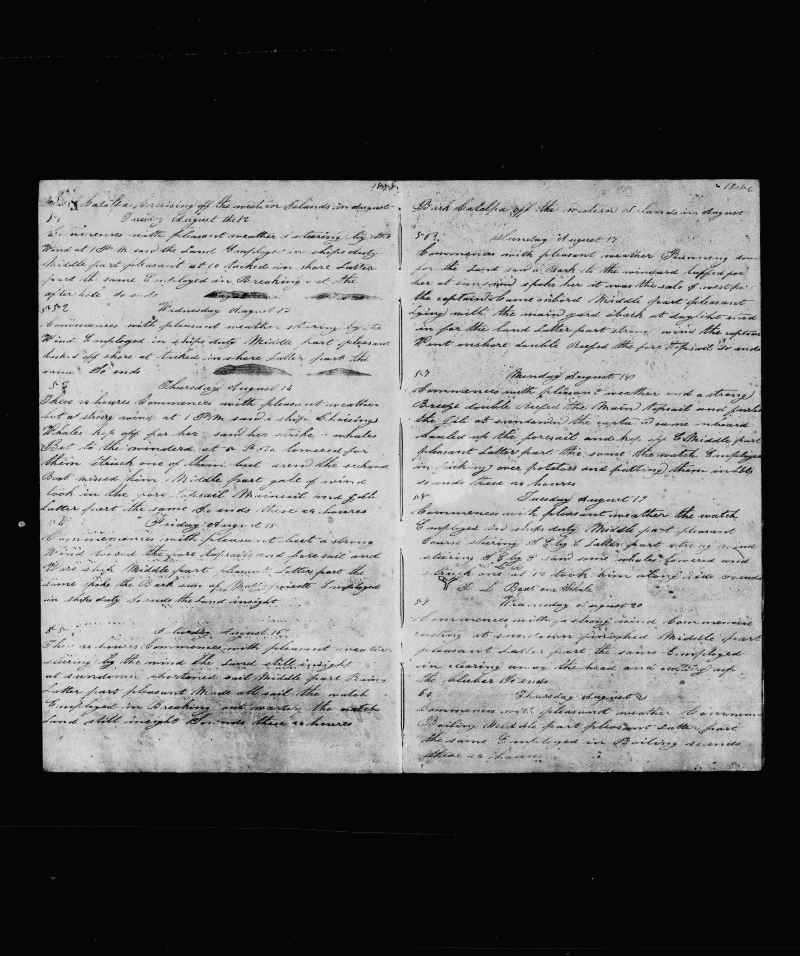 Bark Catalpa Cruising off the western Islands in august
Tuesday August the 12
Commences with pleasant weather stearing by the
Wind at 1 P M saw the Land Employed in ships duty
Middle part pleasant at 10 tacked in shore Latter
part the same Employed in Breaking out the
after hole So ends
Wednesday August 13
Commences with pleasant weather stearing by the
Wind Employed in ships duty Middle part pleasant
tacked off shore at tacked in shore Latter part the
same So ends
Thursday August 14
These 24 houres Commences with pleasant weather
but a strong wind at 1 P M saw a ship Chaising
Whales kep off for her saw her strike whales
Bot to the winderd at 5 P M lowered for
them Struck one of them but the second
Boat missed him Middle part gale of wind
took in the fore topsail Mainsail and Gib
Latter part the same So ends these 24 houres
54 Friday August 15
Commences with pleasant but a strong
Wind the fore topsails and foresail and
Wore ship Middle part pleasant Latter part the
same spoke the Bark Sun of Employed
in ships duty So ends the Land insight
55 Saturday August 16
These 24 houres Commences with pleasant weather
stearing by the wind the Land still insight
at sundown shortened sail Middle part Rainy
Latter part pleasant Made all sail the watch
Employed in Breaking out warter the watch
Land still insight So ends these 24 houres
1856
Bark Catalpa off the western Islands in August
Sunday August 17
Commences with pleasant weather Running down
for the Land saw a Bark to the windard luffed for
her at sundown spoke her it was the of westport
the captain Came onbord Middle part pleasant
lying with the main yard aback at daylight stood
in for the land Latter part strong wind the captain
Went onshore double Reefed the fore topsail So ends
57 Monday August 18
Commences with pleasant weather and a strong
Breeze double reefed the Main topsail and furled
the Gib at sundown the captain came onboard
hauled up the foresail and kep off Middle part
pleasant Latter part the same the watch Employed
in picking over potatoes and putting them in
so ends these 24 houres
58 Tuesday August 19
Commences with pleasant weather the watch
Employed in ships duty Middle part pleasant
Course stearing S E by E Latter part strong wind
stearing S E by E saw some whales lowered and
struck one at 12 took him along side so ends
L Boat one Whale
59 Wednesday August 20
Commences with a strong wind Commencse
cutting at sundown finished Middle part
pleasant Latter part the same Employed
in clearing away the head and cutting up
the blubber So ends
60 Thursday August 21
Commences with pleasant weather Commence
Boiling Middle part pleasant Latter part
the same Employed in Boiling so ends
these 24 houres